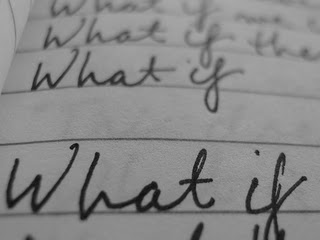 What if we
What if the
What if
What if